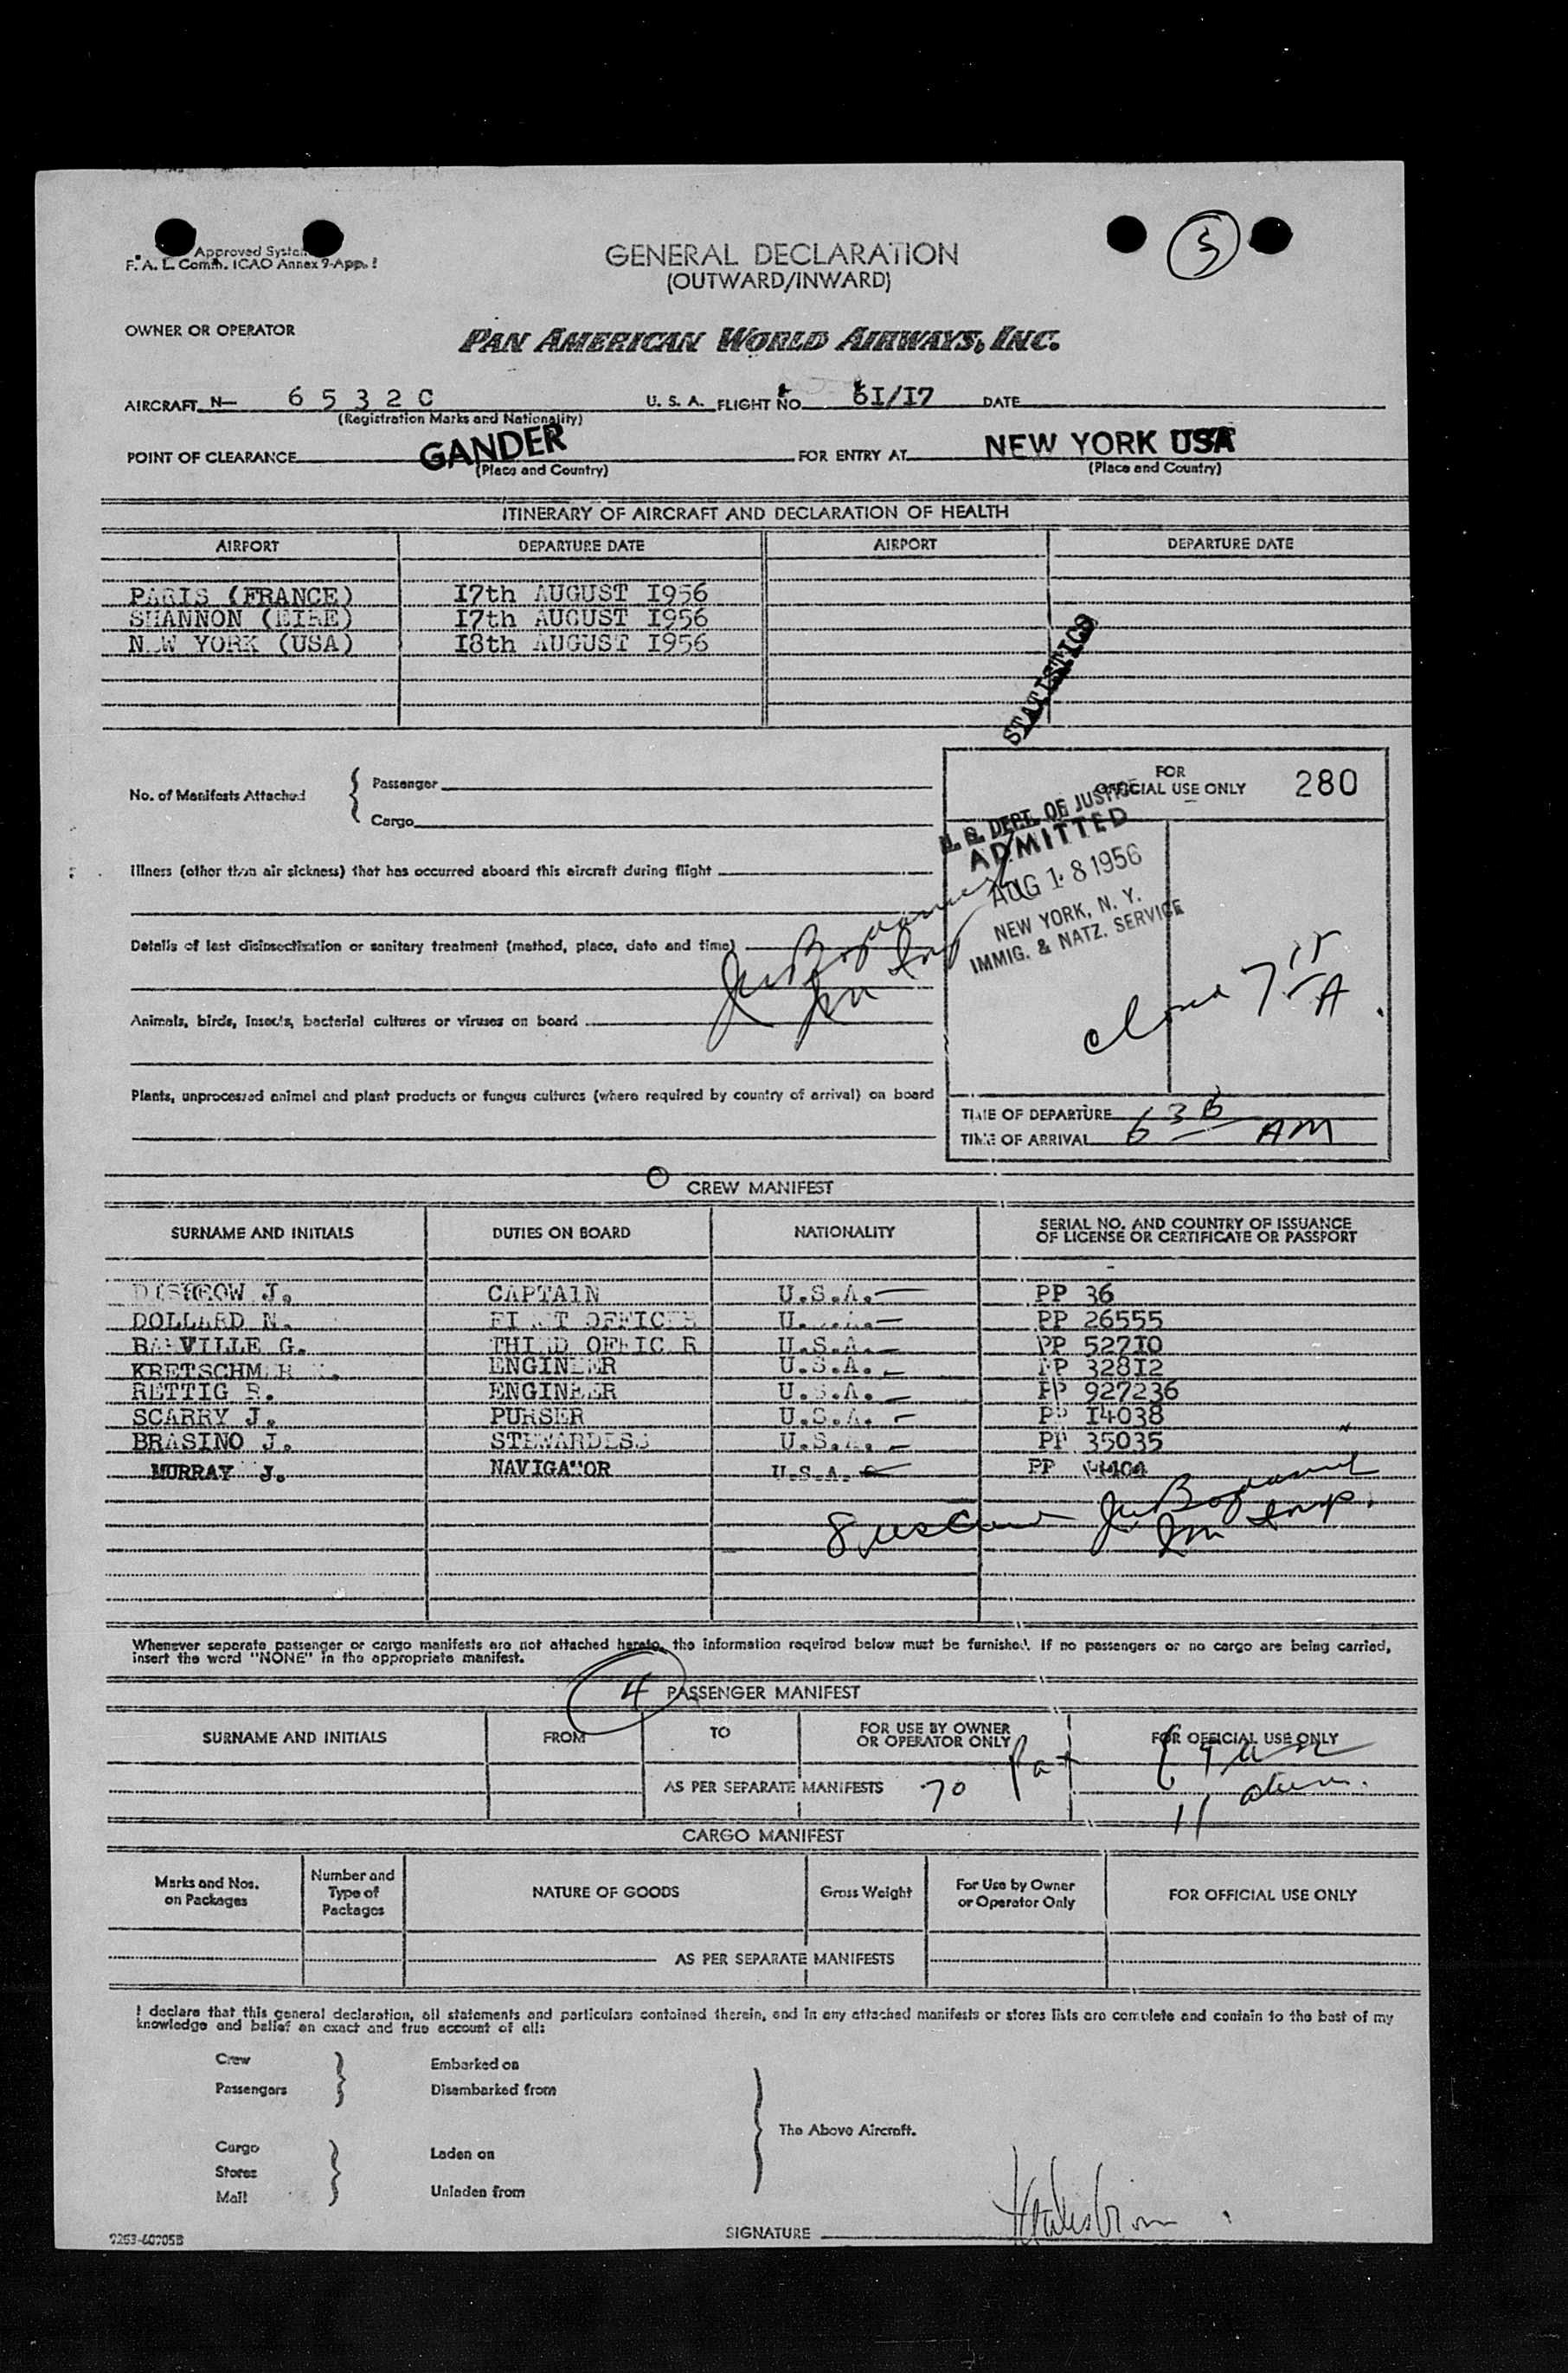 Approved System
F. A. L. Comm. ICAO Annex 9-App. 1
GENERAL DECLARATION
(OUTWARD/INWARD)
3
OWNER OR OPERATOR
PAN AMERICAN WORLD AIRWAYS, INC.
AIRCRAFT N- 6 5 3 2 C U. S. A. FLIGHT NO. 61/I7 DATE
(Registration Marks and Nationality)
POINT OF CLEARANCE GANDER FOR ENTRY AT NEW YORK USA
(Place and Country) (Place and Country)
ITINERARY OF AIRCRAFT AND DECLARATION OF HEALTH
AIRPORT DEPARTURE DATE AIRPORT DEPARTURE DATE
PARIS (FRANCE) I7th AUGUST I956
SHANNON (EIRE) I7th AUGUST I956
NEW YORK (USA) I8th AUGUST I956
STATISTICS
No. of Manifests Attached { Passenger
Cargo
FOR
OFFICIAL USE ONLY 280
U. S. DEPT. OF JUSTICE
ADMITTED
AUG 18 1956
NEW YORK, N. Y.
IMMIG. & NATZ. SERVICE
Illness (other than air sickness) that has occurred aboard this aircraft during flight
Details of last disinsectisation or sanitary treatment (method, place, date and time)
Imm Insp
Animals, birds, insects, bacterial cultures or viruses on board
7 15 A
Plants, unprocessed animal and plant products or fungus cultures (where required by country of arrival) on board
TIME OF DEPARTURE
TIME OF ARRIVAL 6 36 AM
CREW MANIFEST
SURNAME AND INITIALS DUTIES ON BOARD NATIONALITY SERIAL NO. AND COUNTRY OF ISSUANCE
OF LICENSE OR CERTIFICATE OR PASSPORT
J. CAPTAIN U.S.A. PP 36
DOLLARD N. FIRST OFFICER U.S.A. PP 26555
G. THIRD OFFICER U.S.A. PP 527I0
KRETSCHMER ENGINEER U.S.A. PP 328I2
RETTIG R. ENGINEER U.S.A. PP 927236
SCARRY J. PURSER U.S.A. PP I4038
BRASINO J. STEWARDESS U.S.A. PP 35035
MURRAY J. NAVIGATOR U.S.A. PP
8 usc
Imm Insp.
Whenever separate passenger or cargo manifests are not attached hereto, the information required below must be furnished. If no passengers or no cargo are being carried,
insert the word "NONE" in the appropriate manifest.
4 PASSENGER MANIFEST
SURNAME AND INITIALS FROM TO FOR USE BY OWNER
OR OPERATOR ONLY FOR OFFICIAL USE ONLY
AS PER SEPARATE MANIFESTS 70
11
CARGO MANIFEST
Marks and Nos.
on Packages Number and
Type of
Packages NATURE OF GOODS Gross Weight For Use by Owner
or Operator Only FOR OFFICIAL USE ONLY
AS PER SEPARATE MANIFESTS
I declare that this general declaration, all statements and particulars contained therein, and in any attached manifests or stores lists are complete and contain to the best of my
knowledge and belief an exact and true account of all:
Crew
Passengers
Embarked on
Disembarked from
The Above Aircraft.
Cargo
Stores
Mail
Laden on
Unladen from
SIGNATURE
9263-60705B